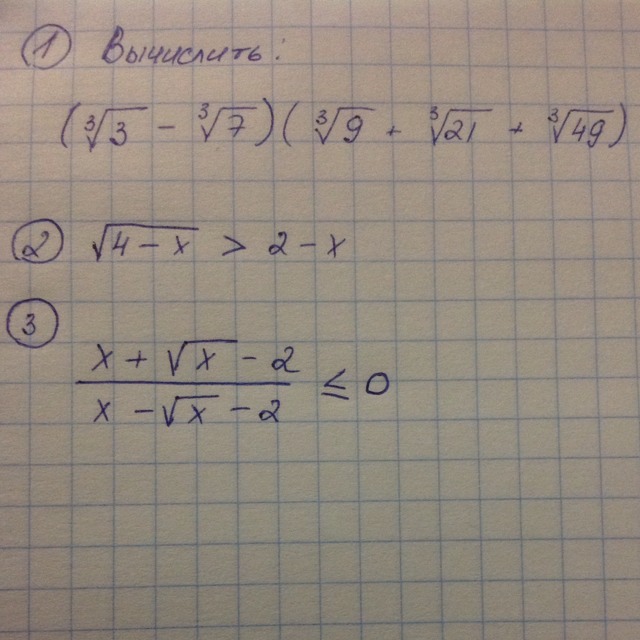 ① Вычислить:
(∛3 − ∛7)(∛9 + ∛21 + ∛49)
② √(4 − x) > 2 − x
③
(x + √x − 2)/(x − √x − 2) ≤ 0